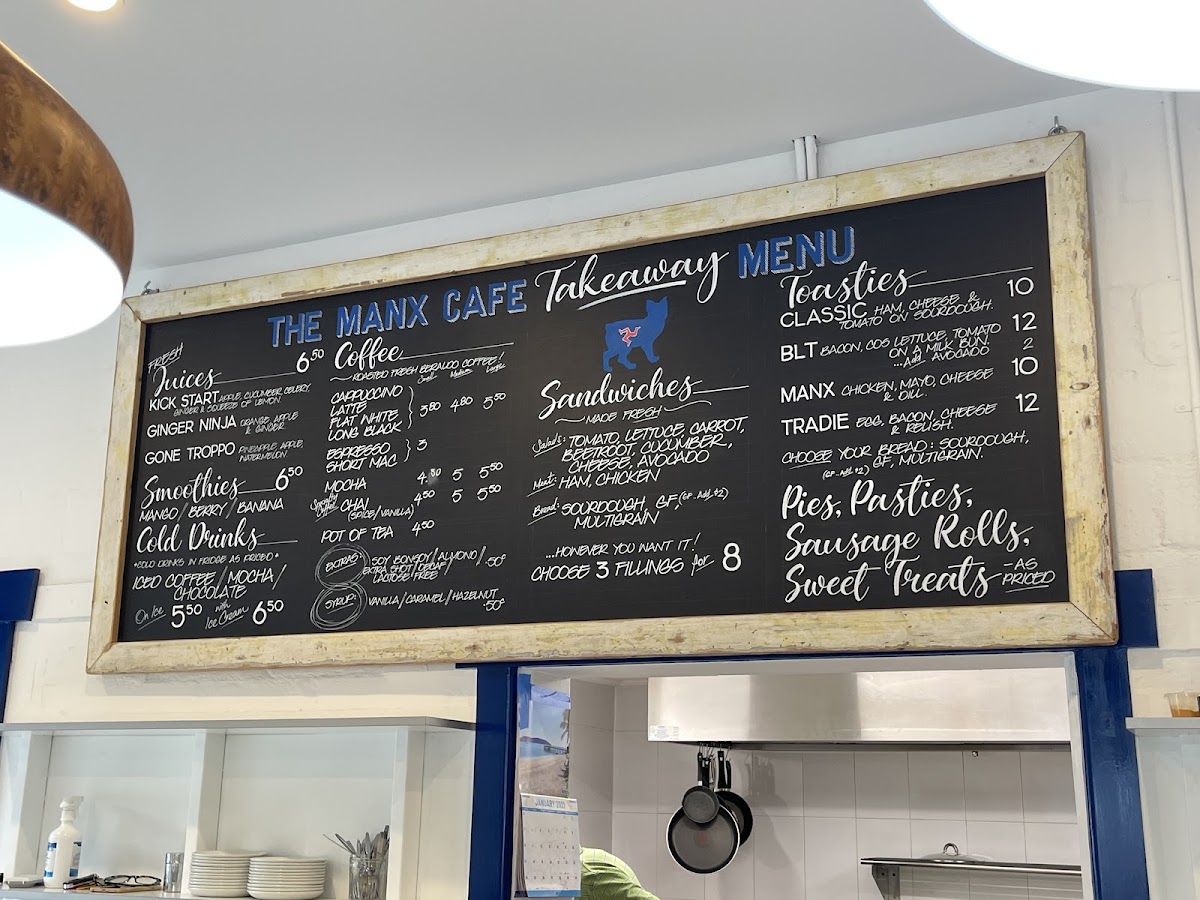 THE MANX CAFE Takeaway MENU
FRESH
Juices 6.50
KICK START APPLE, CUCUMBER, CELERY,
GINGER & SQUEEZE OF LEMON.
GINGER NINJA ORANGE, APPLE
& GINGER.
GONE TROPPO PINEAPPLE, APPLE,
WATERMELON
Smoothies 6.50
MANGO / BERRY / BANANA
Cold Drinks
*COLD DRINKS IN FRIDGE AS PRICED*
ICED COFFEE / MOCHA /
CHOCOLATE
On Ice 5.50 with Ice Cream 6.50
Coffee
~ ROASTED FRESH BERAUDO COFFEE!
Small Medium Large
CAPPUCCINO
LATTE
FLAT WHITE
LONG BLACK
3.80 4.80 5.50
ESPRESSO
SHORT MAC
3
MOCHA 4.50 5 5.50
CHAI 4.50 5 5.50
(SPICE/VANILLA)
POT OF TEA 4.50
EXTRAS: SOY BONSOY / ALMOND /
EXTRA SHOT / DECAF / .50c
LACTOSE FREE
SYRUP: VANILLA / CARAMEL / HAZELNUT
.50c
Sandwiches
~ MADE FRESH ~
Salads: TOMATO, LETTUCE, CARROT,
BEETROOT, CUCUMBER,
CHEESE, AVOCADO
Meat: HAM, CHICKEN
Bread: SOURDOUGH, GF, (GF - Add $2)
MULTIGRAIN
...HOWEVER YOU WANT IT!
CHOOSE 3 FILLINGS for 8
Toasties
CLASSIC HAM, CHEESE & 10
TOMATO ON SOURDOUGH.
BLT BACON, COS LETTUCE, TOMATO 12
ON A MILK BUN.
...Add AVOCADO 2
MANX CHICKEN, MAYO, CHEESE 10
& DILL.
TRADIE EGG, BACON, CHEESE 12
& RELISH.
CHOOSE YOUR BREAD: SOURDOUGH,
(GF - Add $2) GF, MULTIGRAIN.
Pies, Pasties,
Sausage Rolls,
Sweet Treats - AS
PRICED